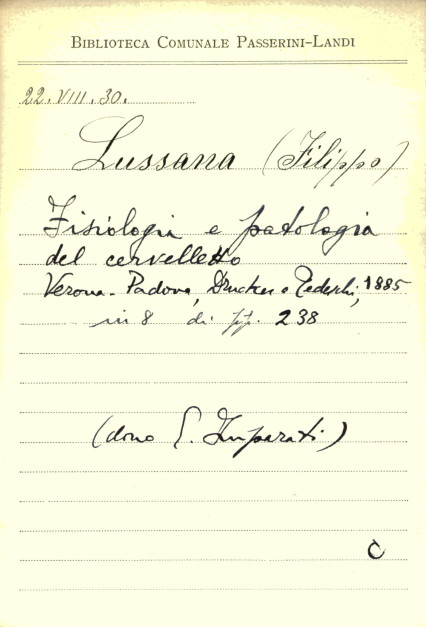 BIBLIOTECA COMUNALE PASSERINI-LANDI
22.VIII.30.
Lussana (Filippo)
Fisiologia e patologia
del cervelletto
Verona-Padova, Drucker e Tedeschi, 1885
in 8 di pp. 238
(dono E. Imparati)
C